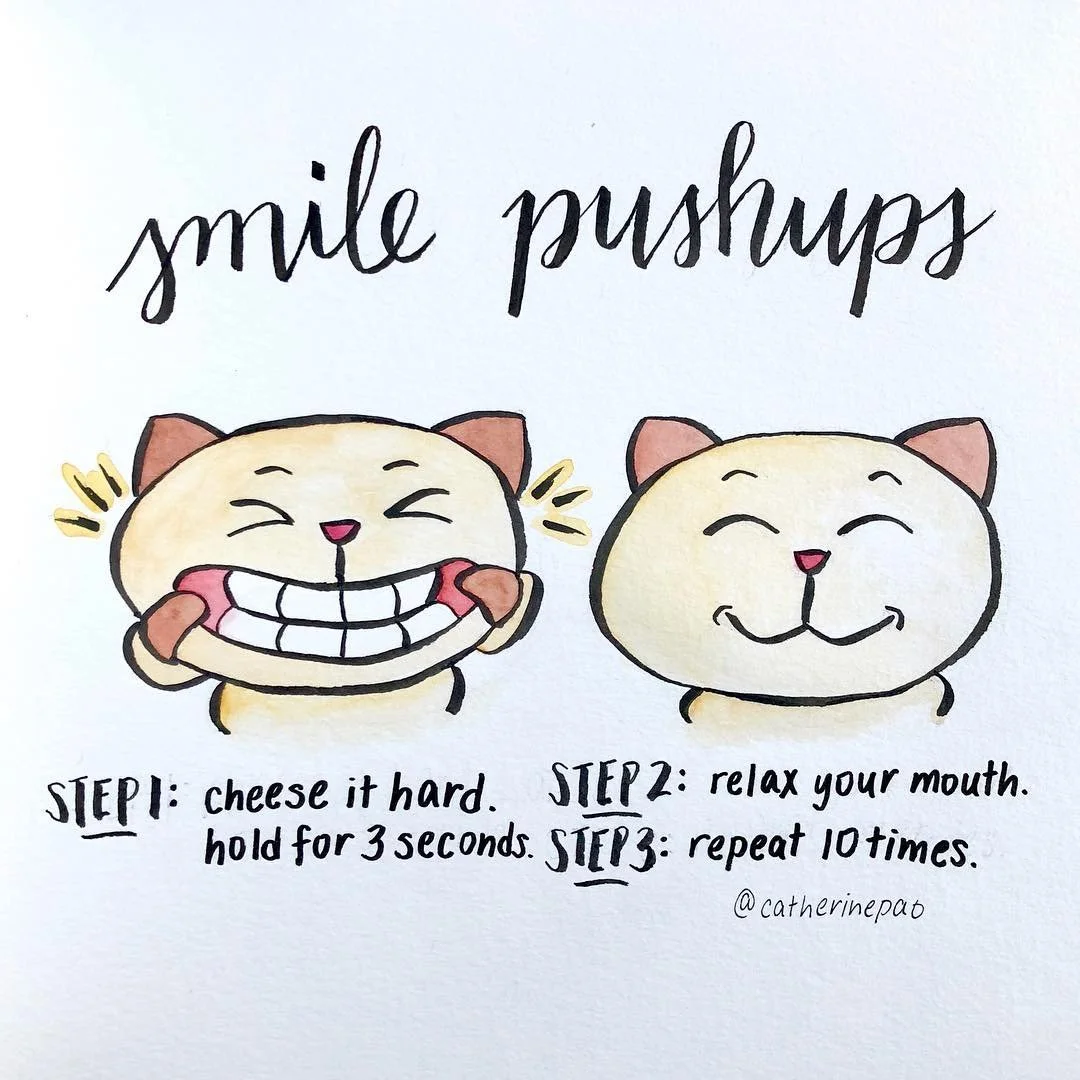 smile pushups
STEP 1: cheese it hard.
hold for 3 seconds.
STEP 2: relax your mouth.
STEP 3: repeat 10 times.
@catherinepao